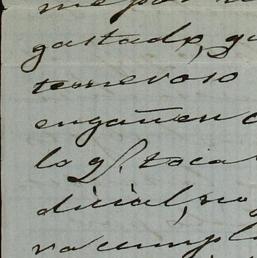 mejor
gastado, q
tenevoso
engañen
lo qf. toca
dicial, no
va cumpl